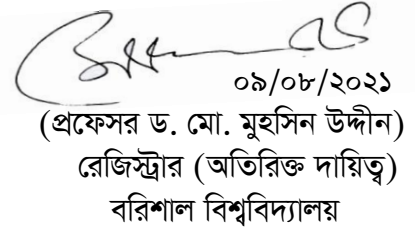 ০৯/০৮/২০২১
(প্রফেসর ড. মো. মুহসিন উদ্দীন)
রেজিস্ট্রার (অতিরিক্ত দায়িত্ব)
বরিশাল বিশ্ববিদ্যালয়